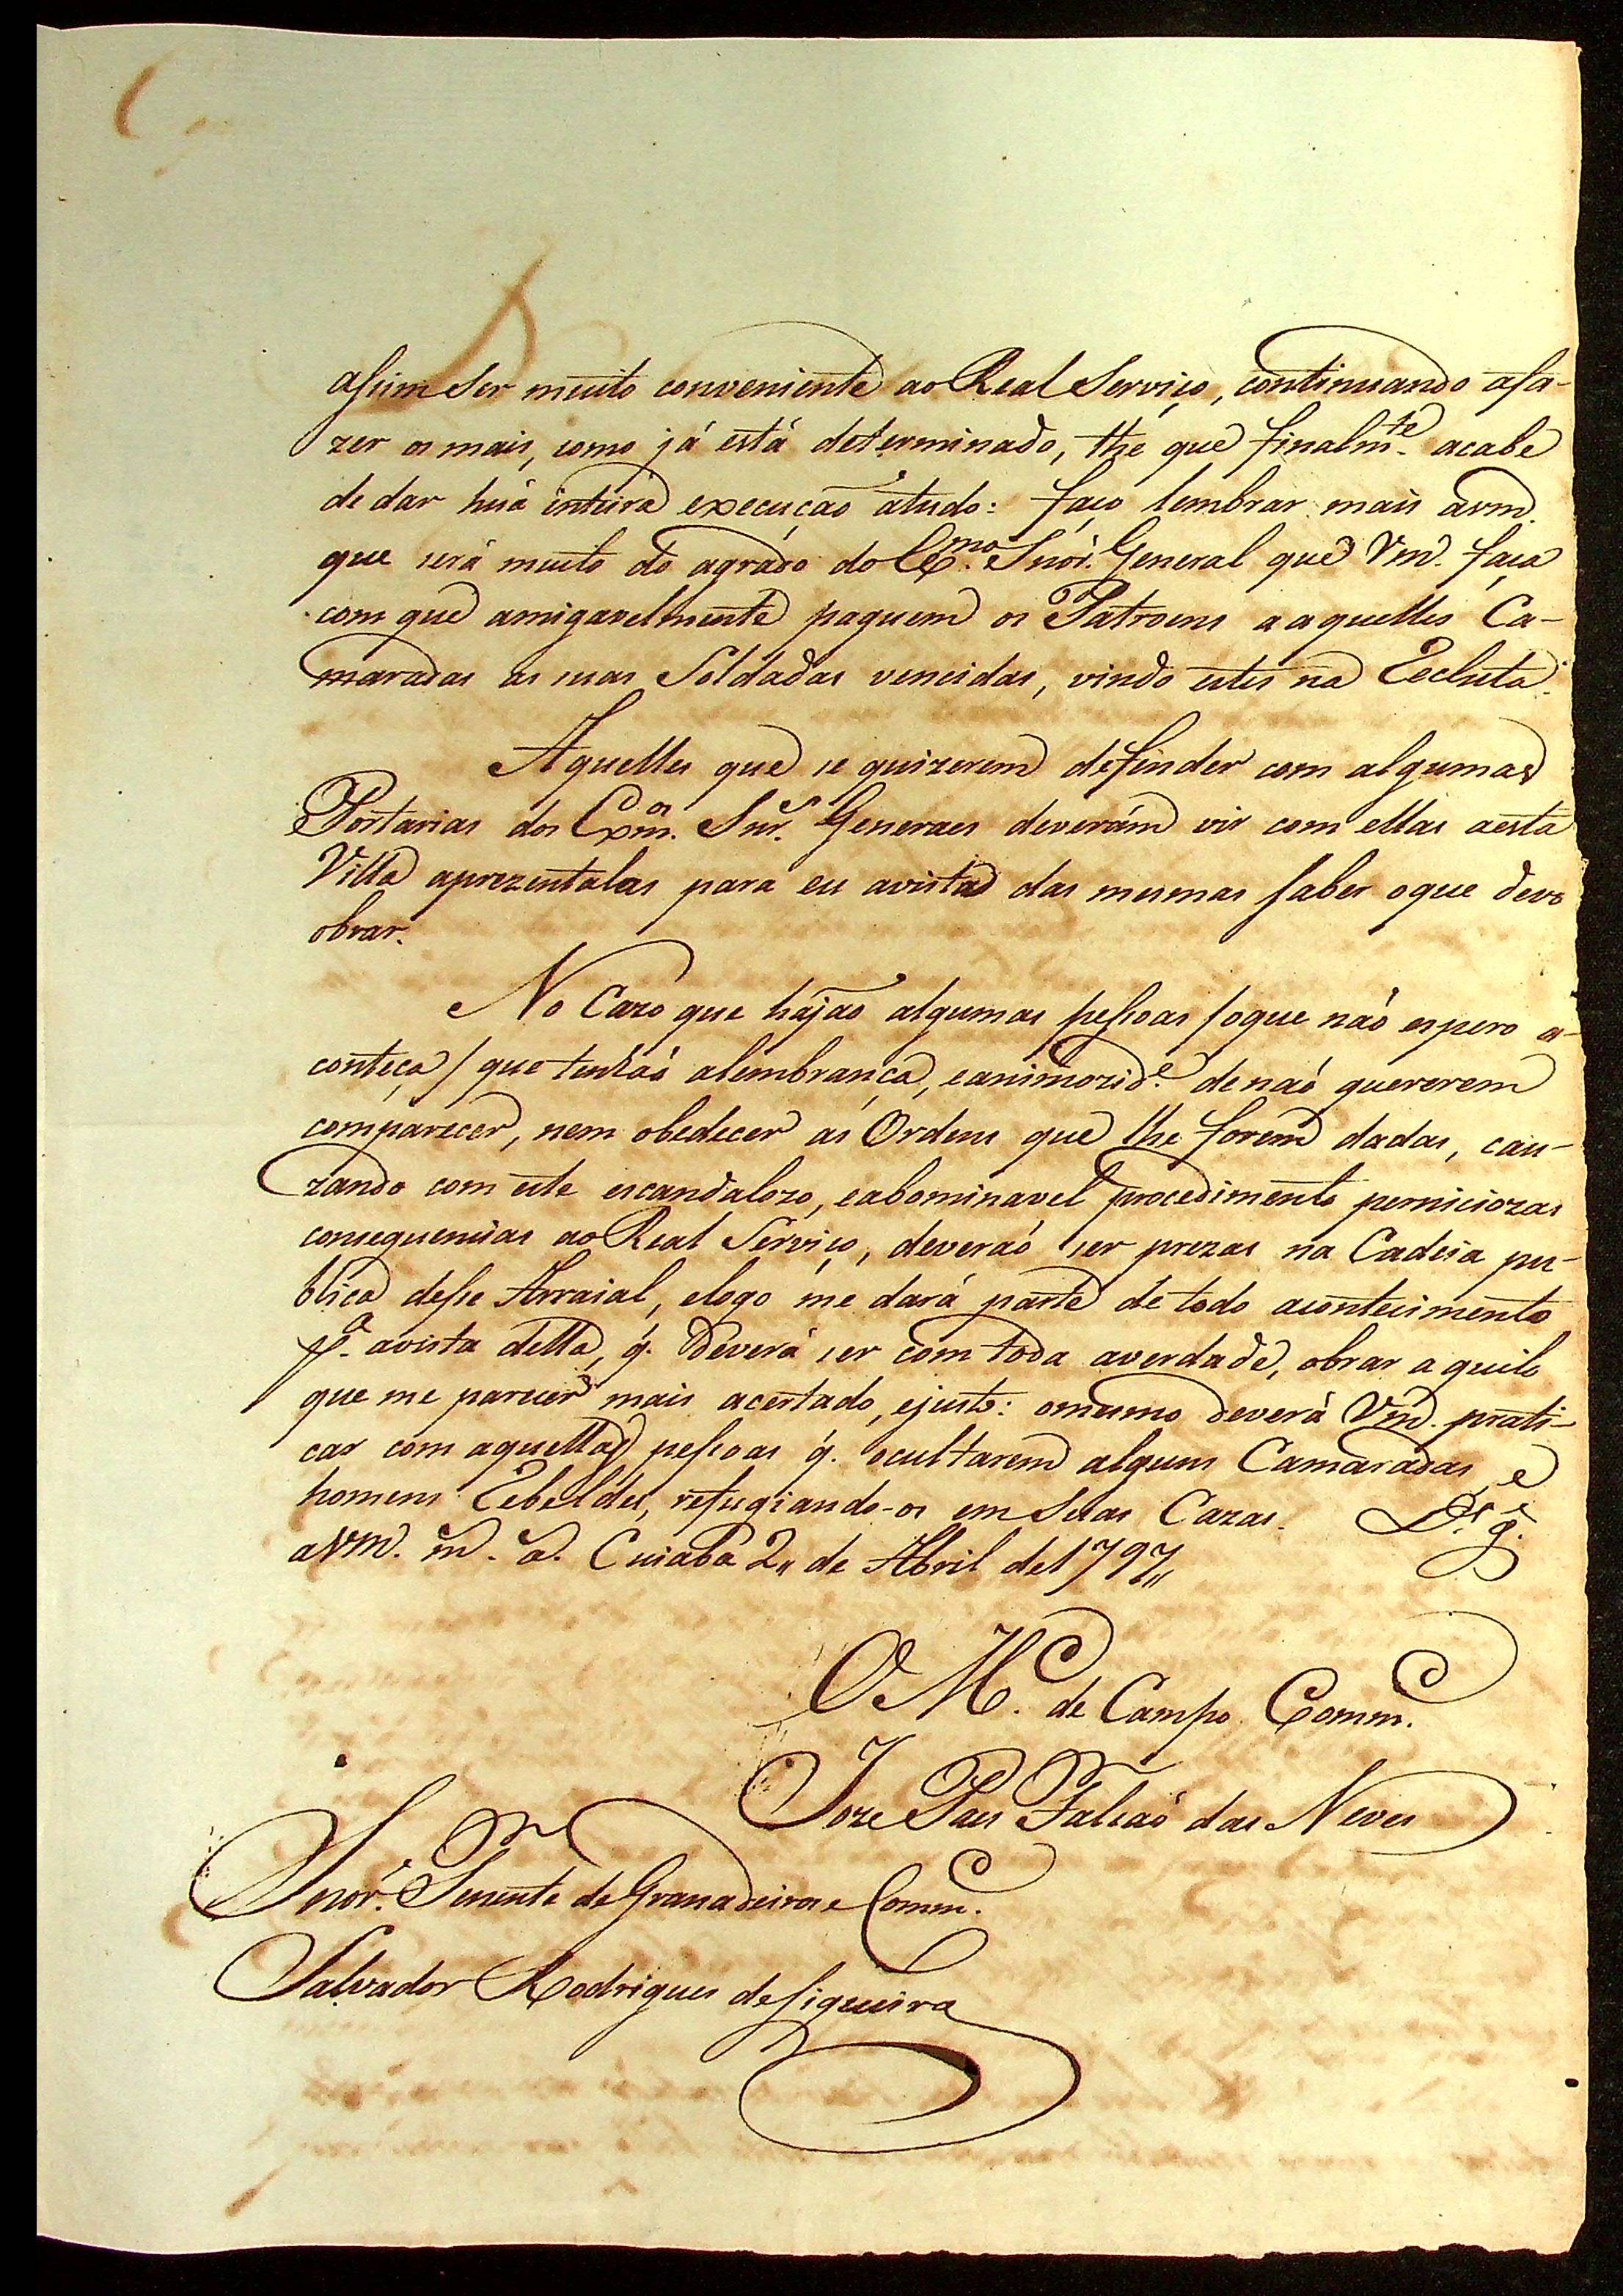 assim ser muito conveniente ao Real Serviço, continuando afa-
zer os mais, como já está determinado, thé que finalm.te acabe
de dar huã inteira execução atudo: faço lembrar mais avm.
que será muito do agrado do Ex.mo Snõr. General que Vm. faça
com que amigavelmente paguem os Patroens a aquelles Ca-
maradas as suas Soldadas vencidas, vindo estes na Recluta.
Aquelles que se quizerem defender com algumas
Portarias dos Exm.os Snr.s Generaes deverám vir com ellas aesta
Villa aprezentalas para eu avista das mesmas saber oque devo
obrar.
No Cazo que hajaõ algumas pessoas /oque naõ espero a-
conteça/ que tenhaõ alembrança, eanimozid.e denaõ quererem
comparecer, nem obedecer as Ordens que lhe forem dadas, cau-
zando com este escandalozo, eabominavel procedimento perniciozas
consequencias ao Real Serviço, deveraõ ser prezas na Cadeia pu-
blica desse Arraial, elogo me dará parte de todo acontecimento
p.a avista della, q. deverá ser com toda averdade, obrar aquilo
que me parecer mais acertado, ejusto: omesmo deverá Vm. prati-
car com aquellas pessoas q. ocultarem alguns Camaradas, e
homens Rebeldes, refugiando-os em suas Cazas. D.s g.e
aVm. m. a. Cuiabá 2,, de Abril de 1797,,
O M.e de Campo Comm.e
Joze Paes Falcaõ das Neves
Snõr. Tenente de Granadeiros e Comm.e
Salvador Rodrigues deSiqueira